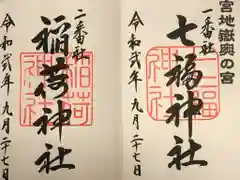 宮地嶽奥の宮
一番社
七福神社
令和弐年九月二十七日
二番社
稲荷神社
令和弐年九月二十七日